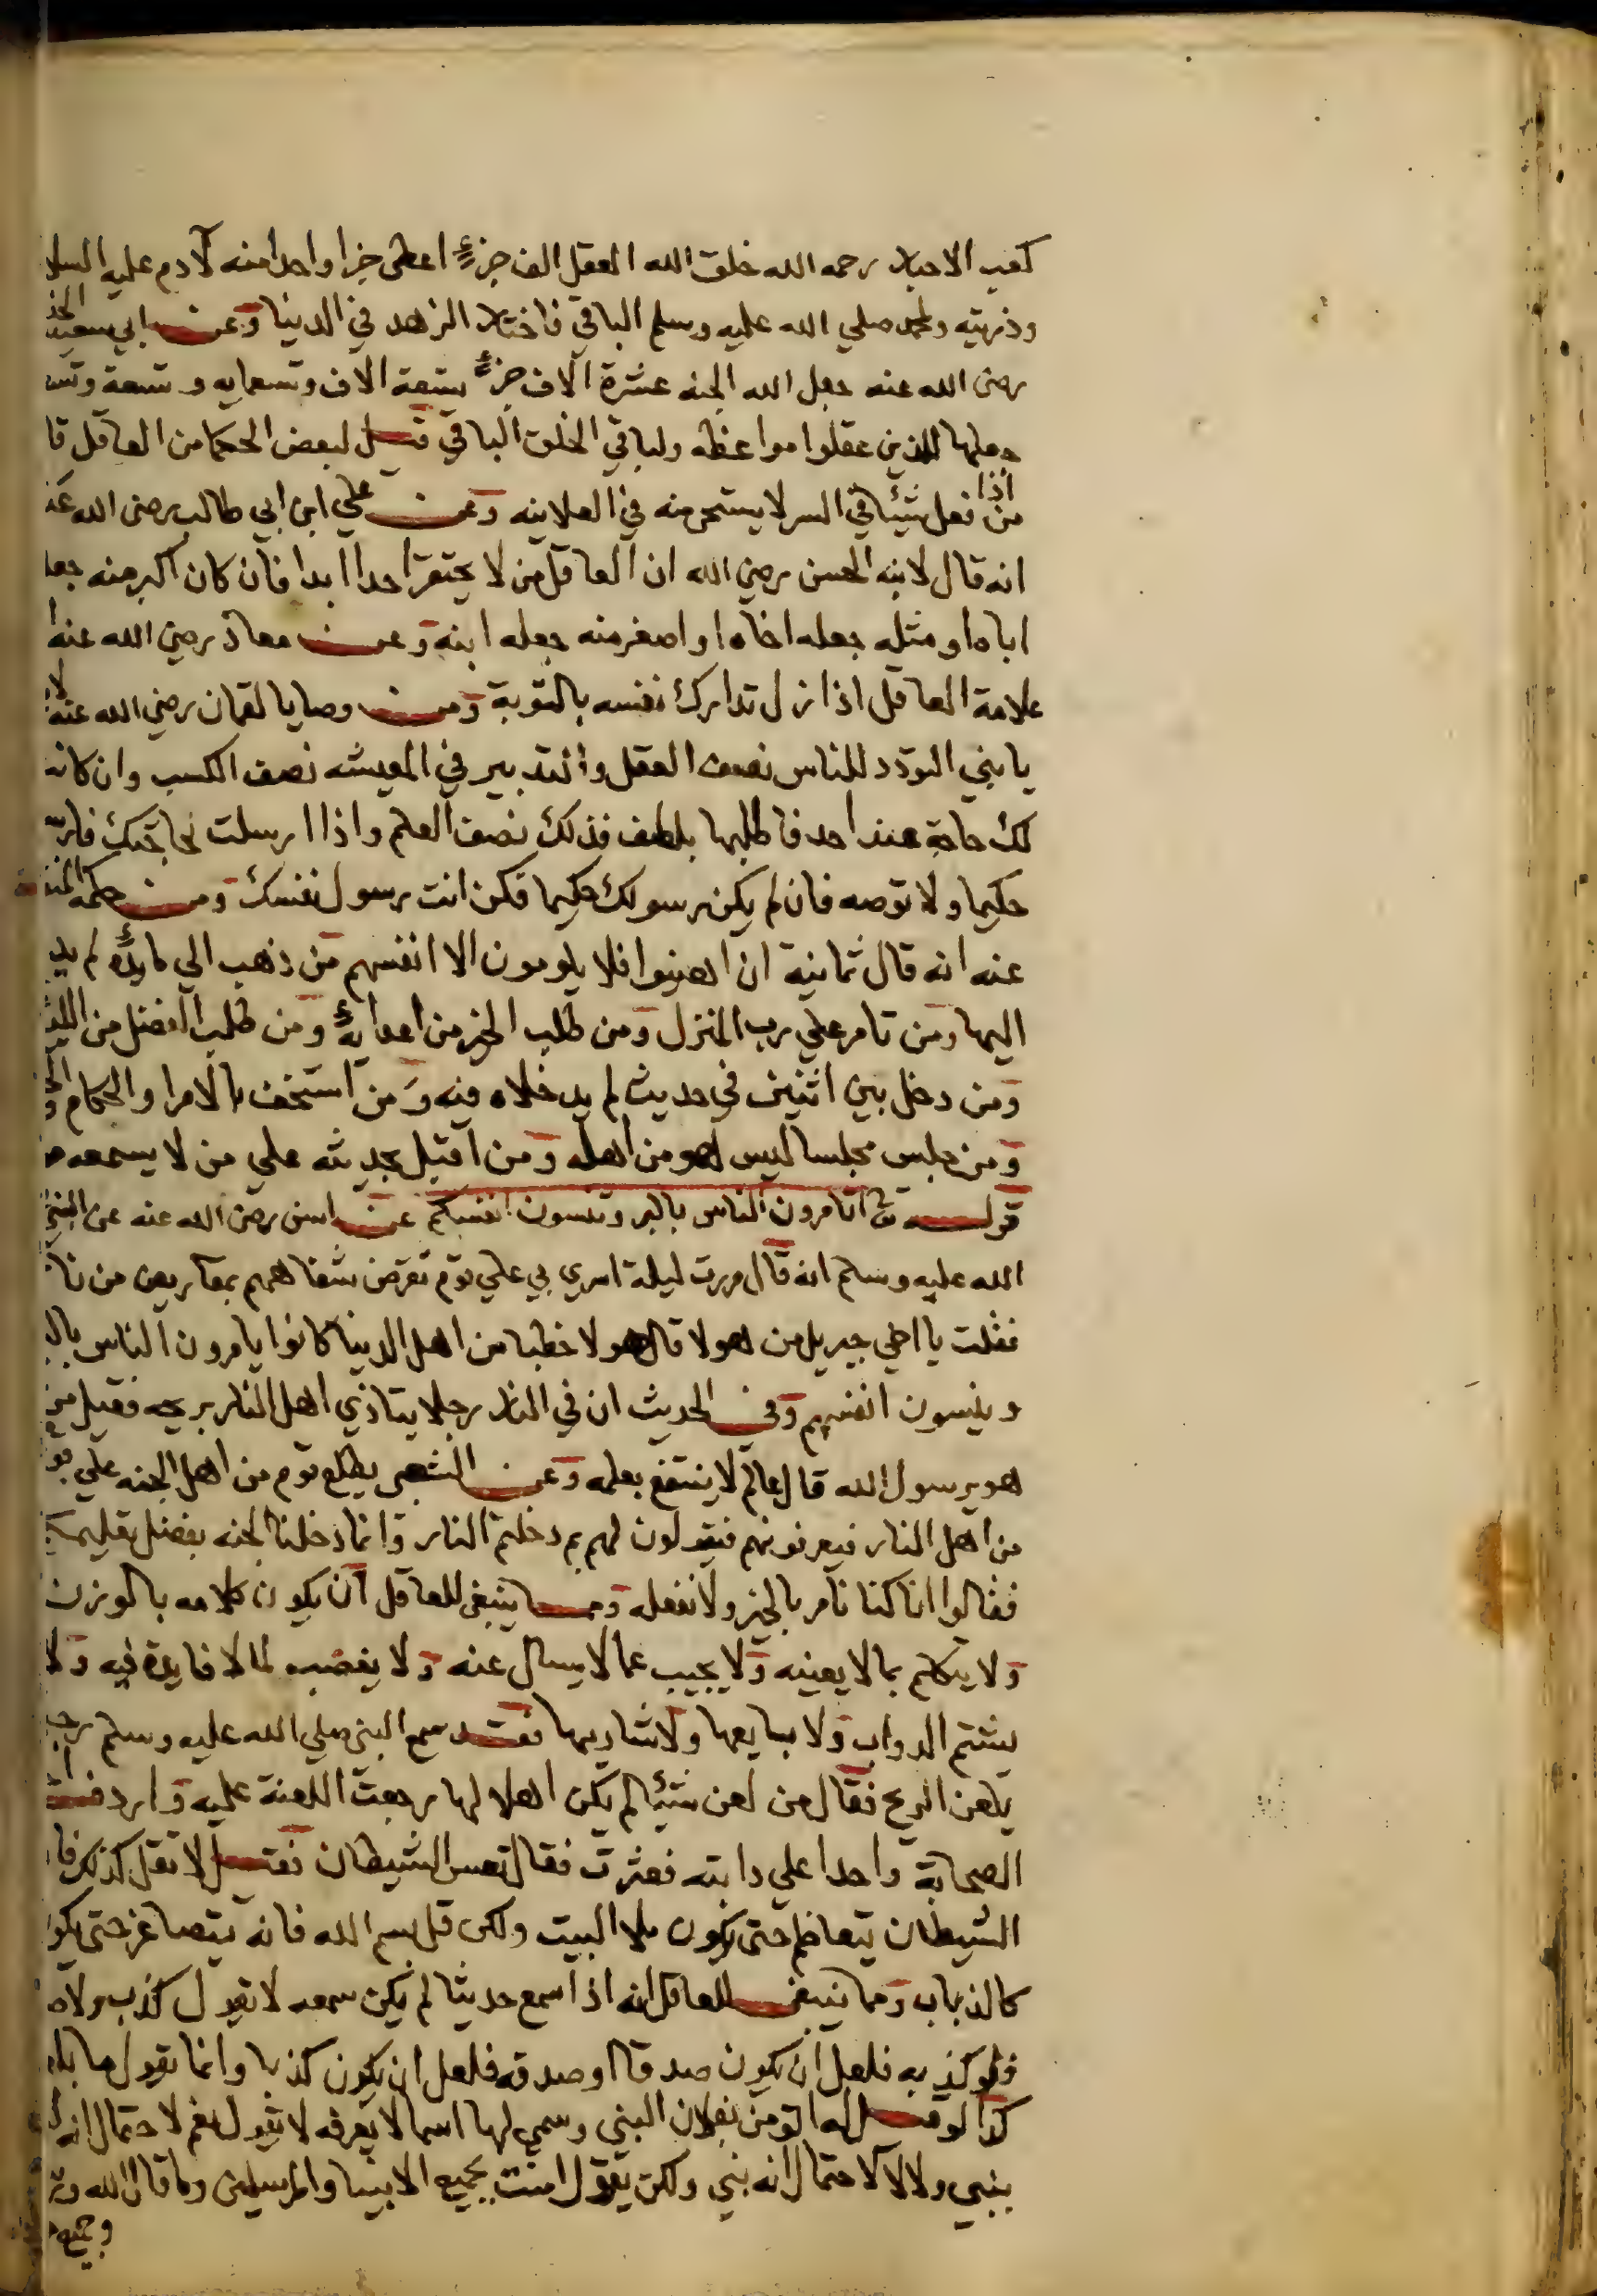 كعب الاحبار رحمه الله خلق الله العقل الف جزءٍ اعطى جزا واحدا منه لآدم عليه السلا
وذريته ولمحمد صلي الله عليه وسلم الباقي فاختار الزهد في الدنيا وعن ابي سعيد الخد
رضى الله عنه جعل الله الجنه عشرة الاف جزءٍ تسعة الاف وتسعمايه وتسعة وتس
جعلها للذين عقلوا مواعظه ولباقي الخلق الباقي قيل لبعض الحكما من العاقل قا
من اذا فعل شيئا في السر لا يستحي منه في العلانيه وعن علي ابن ابي طالب رضى الله عنه
انه قال لابنه الحسن رضي الله ان العاقل من لا يحتقر احدا ابدا فان كان اكبر منه جعل
اباه او مثله جعله اخاه او اصغر منه جعله ابنه وعن معاذ رضي الله عنه
علامة العاقل اذا زل تدارك نفسه بالتوبة ومن وصايا لقمان رضي الله عنه لا
يا بني التودد للناس نصف العقل والتدبير في المعيشه نصف الكسب وان كانت
لك حاجة عند احد فاطلبها بلطف فذلك نصف العلم واذا ارسلت لحاجتك فار
حكيما ولا توصه فان لم يكن رسولك حكيما فكن انت رسول نفسك ومن حكمه
عنه انه قال ثمانية ان اهينوا فلا يلومون الا انفسهم من ذهب الي مايدةٍ لم يد
اليها ومن تامر علي رب المنزل ومن طلب الخير من اعدائه ومن طلب الفضل من اللئ
ومن دخل بين اثنين في حديث لم يدخلاه فيه ومن استخف بالامرا والحكام
ومن جلس مجلسا ليس هو من اهله ومن اقبل بحديثه علي من لا يسمعه
قوله تع اتامرون الناس بالبر وتنسون انفسكم عن انس رضى الله عنه عن النبي
الله عليه وسلم انه قال مررت ليلة اسري بي علي قوم تقرض شفاههم بمقاريض من نا
فقلت يا اخي جبريل من هولا قال هولا خطبا من اهل الدنيا كانوا يامرون الناس بال
وينسون انفسهم وفي الحديث ان في النار رجلا يتاذي اهل النار بريحه فقيل من
هو يرسول الله قال عالم لا ينتفع بعلمه وعن الشعبى يطلع قوم من اهل الجنه علي قو
من اهل النار فيعرفونهم فيقولون لهم بم دخلتم النار وانما دخلنا الجنه بفضل تعليمكم
فقالوا انا كنا نامر بالخير ولا نفعله ومما ينبغى للعاقل ان يكون كلامه بالوزن
ولا يتكلم بما لا يعنيه ولا يجيب عما لا يسال عنه ولا يغضب لما لا فايدة فيه ولا
يشتم الدواب ولا بايعها ولا شاريها فقد سمع النبى صلي الله عليه وسلم رجلا
يلعن الريح فقال من لعن شيئا لم يكن اهلا لها رجعت اللعنة عليه واردف
الصحابة واحدا علي دابته فعثرت فقال تعس الشيطان فقيل لا تقل كذلك فا
الشيطان يتعاظم حتى يكون ملا البيت ولكن قل بسم الله فانه يتصاغر حتى يكو
كالذباب ومما ينبغى للعاقل انه اذا سمع حديثا لم يكن سمعه لا يقول كذب ولا
فلو كذب به فلعل ان يكون صدقا او صدقه فلعل ان يكون كذبا وانما يقول ما بل
كذا لو قيل له اتومن بفلان النبي وسمي لها اسما لا يعرفه لا يقول نعم لاحتمال انه
بنبي ولا لا لاحتمال انه نبي ولكن يقول امنت بجميع الانبيا والمرسلين وما قال الله
وجميع